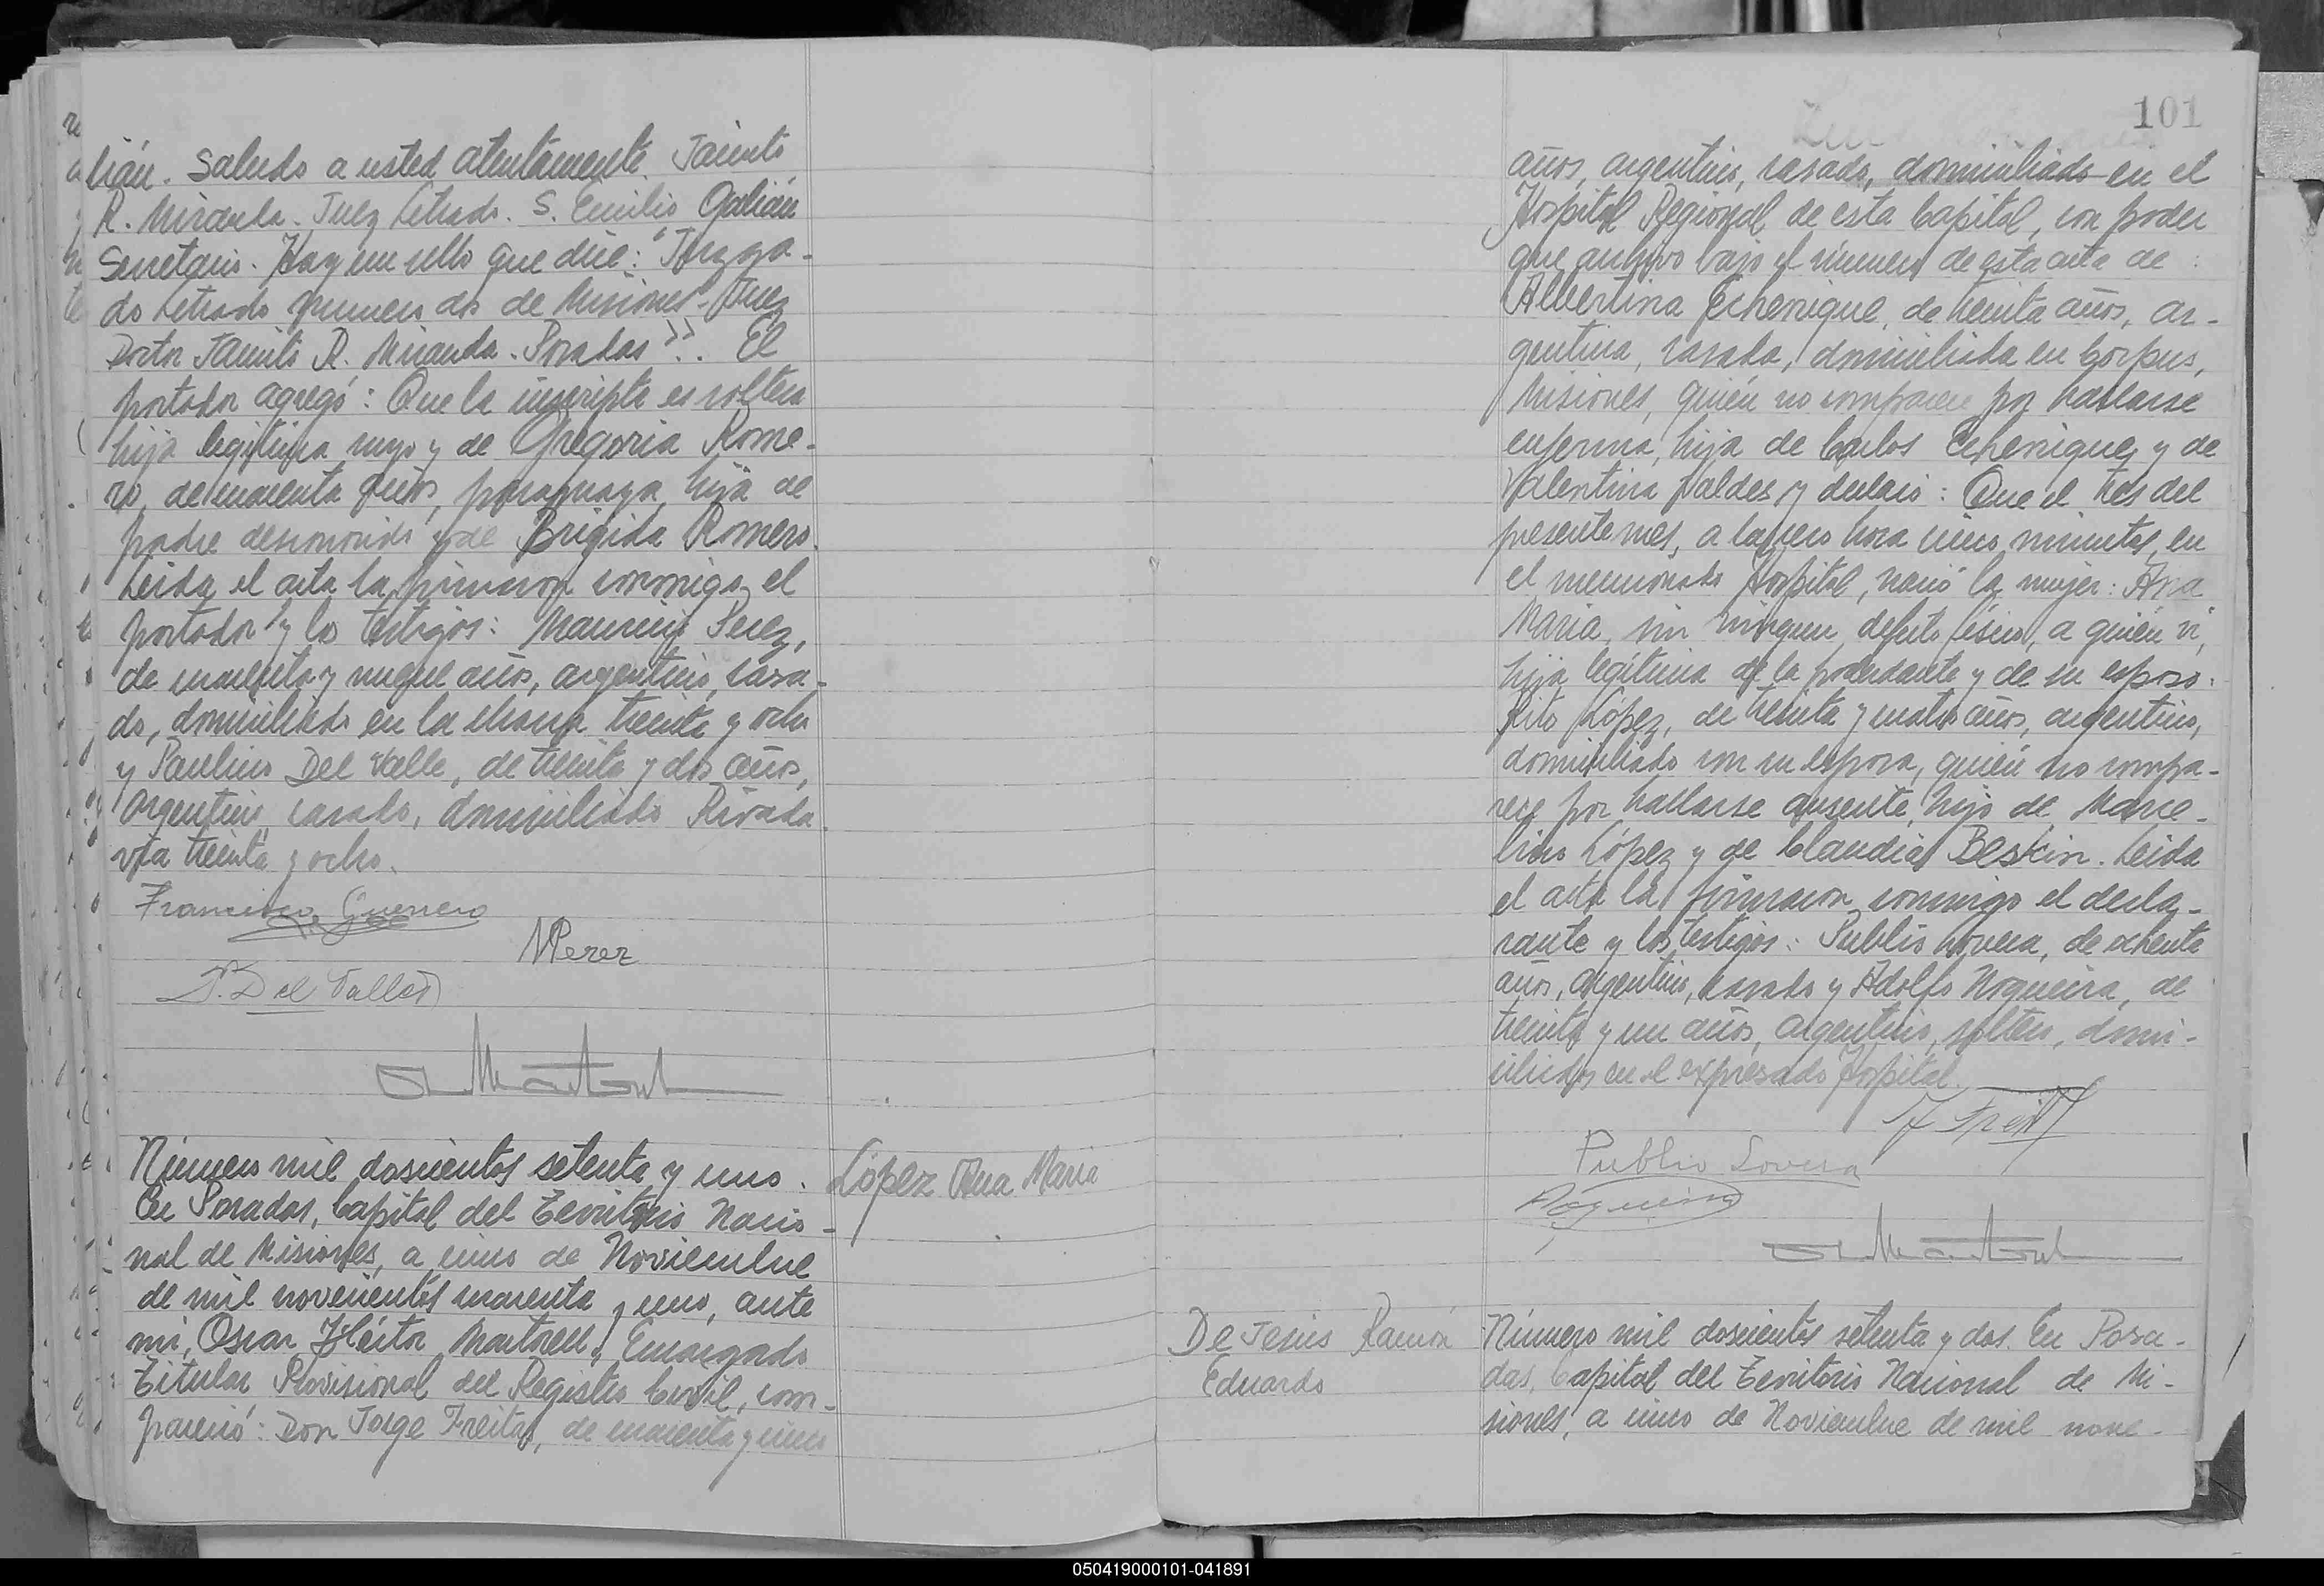 lián. Saludo a usted atentamente. Jacinto
R. Miranda. Juez Letrado. S. Emilio Galián
Secretario. Hay un sello que dice: "Juzga-
do Letrado numero dos de Misiones- Juez
Doctor Jacinto R. Miranda. Posadas". El
portador agregó: Que la inscripta es soltera
hija legitima suya y de Gregoria Rome-
ro, de cuarenta años, paraguaya, hija de
padre desconocido y de Brigida Romero.
Leida el acta la firmaron conmigo el
portador y los testigos: Mauricio Perez,
de cuarenta y nueve años, argentino, casa-
do, domiciliado en la chacra treinta y ocho
y Paulino Del Valle, de treinta y dos años,
argentino, casado, domiciliado Rivada-
via treinta y ocho.
Francisco Guerrero
MPerez
P. Del Valle
O H Martorell
Número mil doscientos setenta y uno.
López Ana Maria
En Posadas, Capital del Territorio Nacio-
nal de Misiones, a cinco de Noviembre
de mil novecientos cuarenta y uno, ante
mi, Oscar Héctor Martorell, Encargado
Titular Provisional del Registro Civil, com-
pareció: Don Jorge Freitas, de cuarenta y cinco
101
años, argentino, casado, domiciliado en el
Hospital Regional de esta Capital, con poder
que archivo bajo el número de esta acta de:
Albertina Echenique, de treinta años, ar-
gentina, casada, domiciliada en Corpus,
Misiones, quién no comparece por hallarse
enferma, hija de Carlos Echenique y de
Valentina Valdes y declaró: Que el tres del
presente mes, a las cero hora cinco minutos, en
el mencionado Hospital, nació la mujer: Ana
Maria, sin ningun defecto fisico, a quién vi,
hija legitima de la poderdante y de su esposo:
Rito López, de treinta y cuatro años, argentino,
domiciliado con su esposa, quién no compa-
rece por hallarse ausente, hijo de Marce-
lino López y de Claudia Beskin. Leida
el acta la firmaron conmigo el decla-
rante y los testigos: Publio Lovera, de ochenta
años, argentino, casado y Adolfo Nogueira, de
treinta y un años, argentino, soltero, domi-
ciliados en el expresado Hospital.
J Freitas
Publio Lovera
ANogueira
O H Martorell
De Jesús Ramón
Eduardo
Número mil doscientos setenta y dos. En Posa-
das, Capital del Territorio Nacional de Mi-
siones, a cinco de Noviembre de mil nove-
050419000101-041891